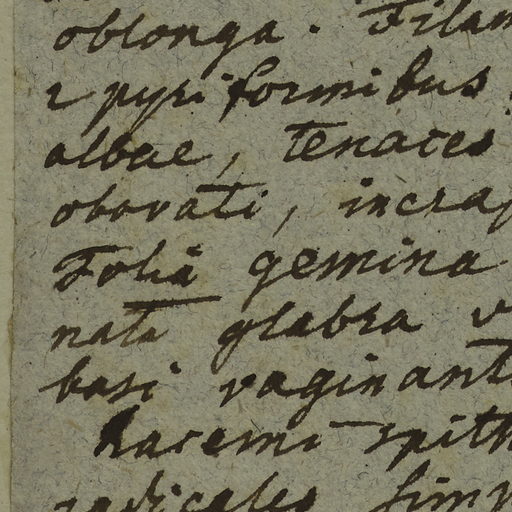 oblonga. Filam
2 pyriformibus
albae, tenaces
obovati, incras
Folia gemina
nata glabra v
basi vaginant
Racemi spith
radicales simp